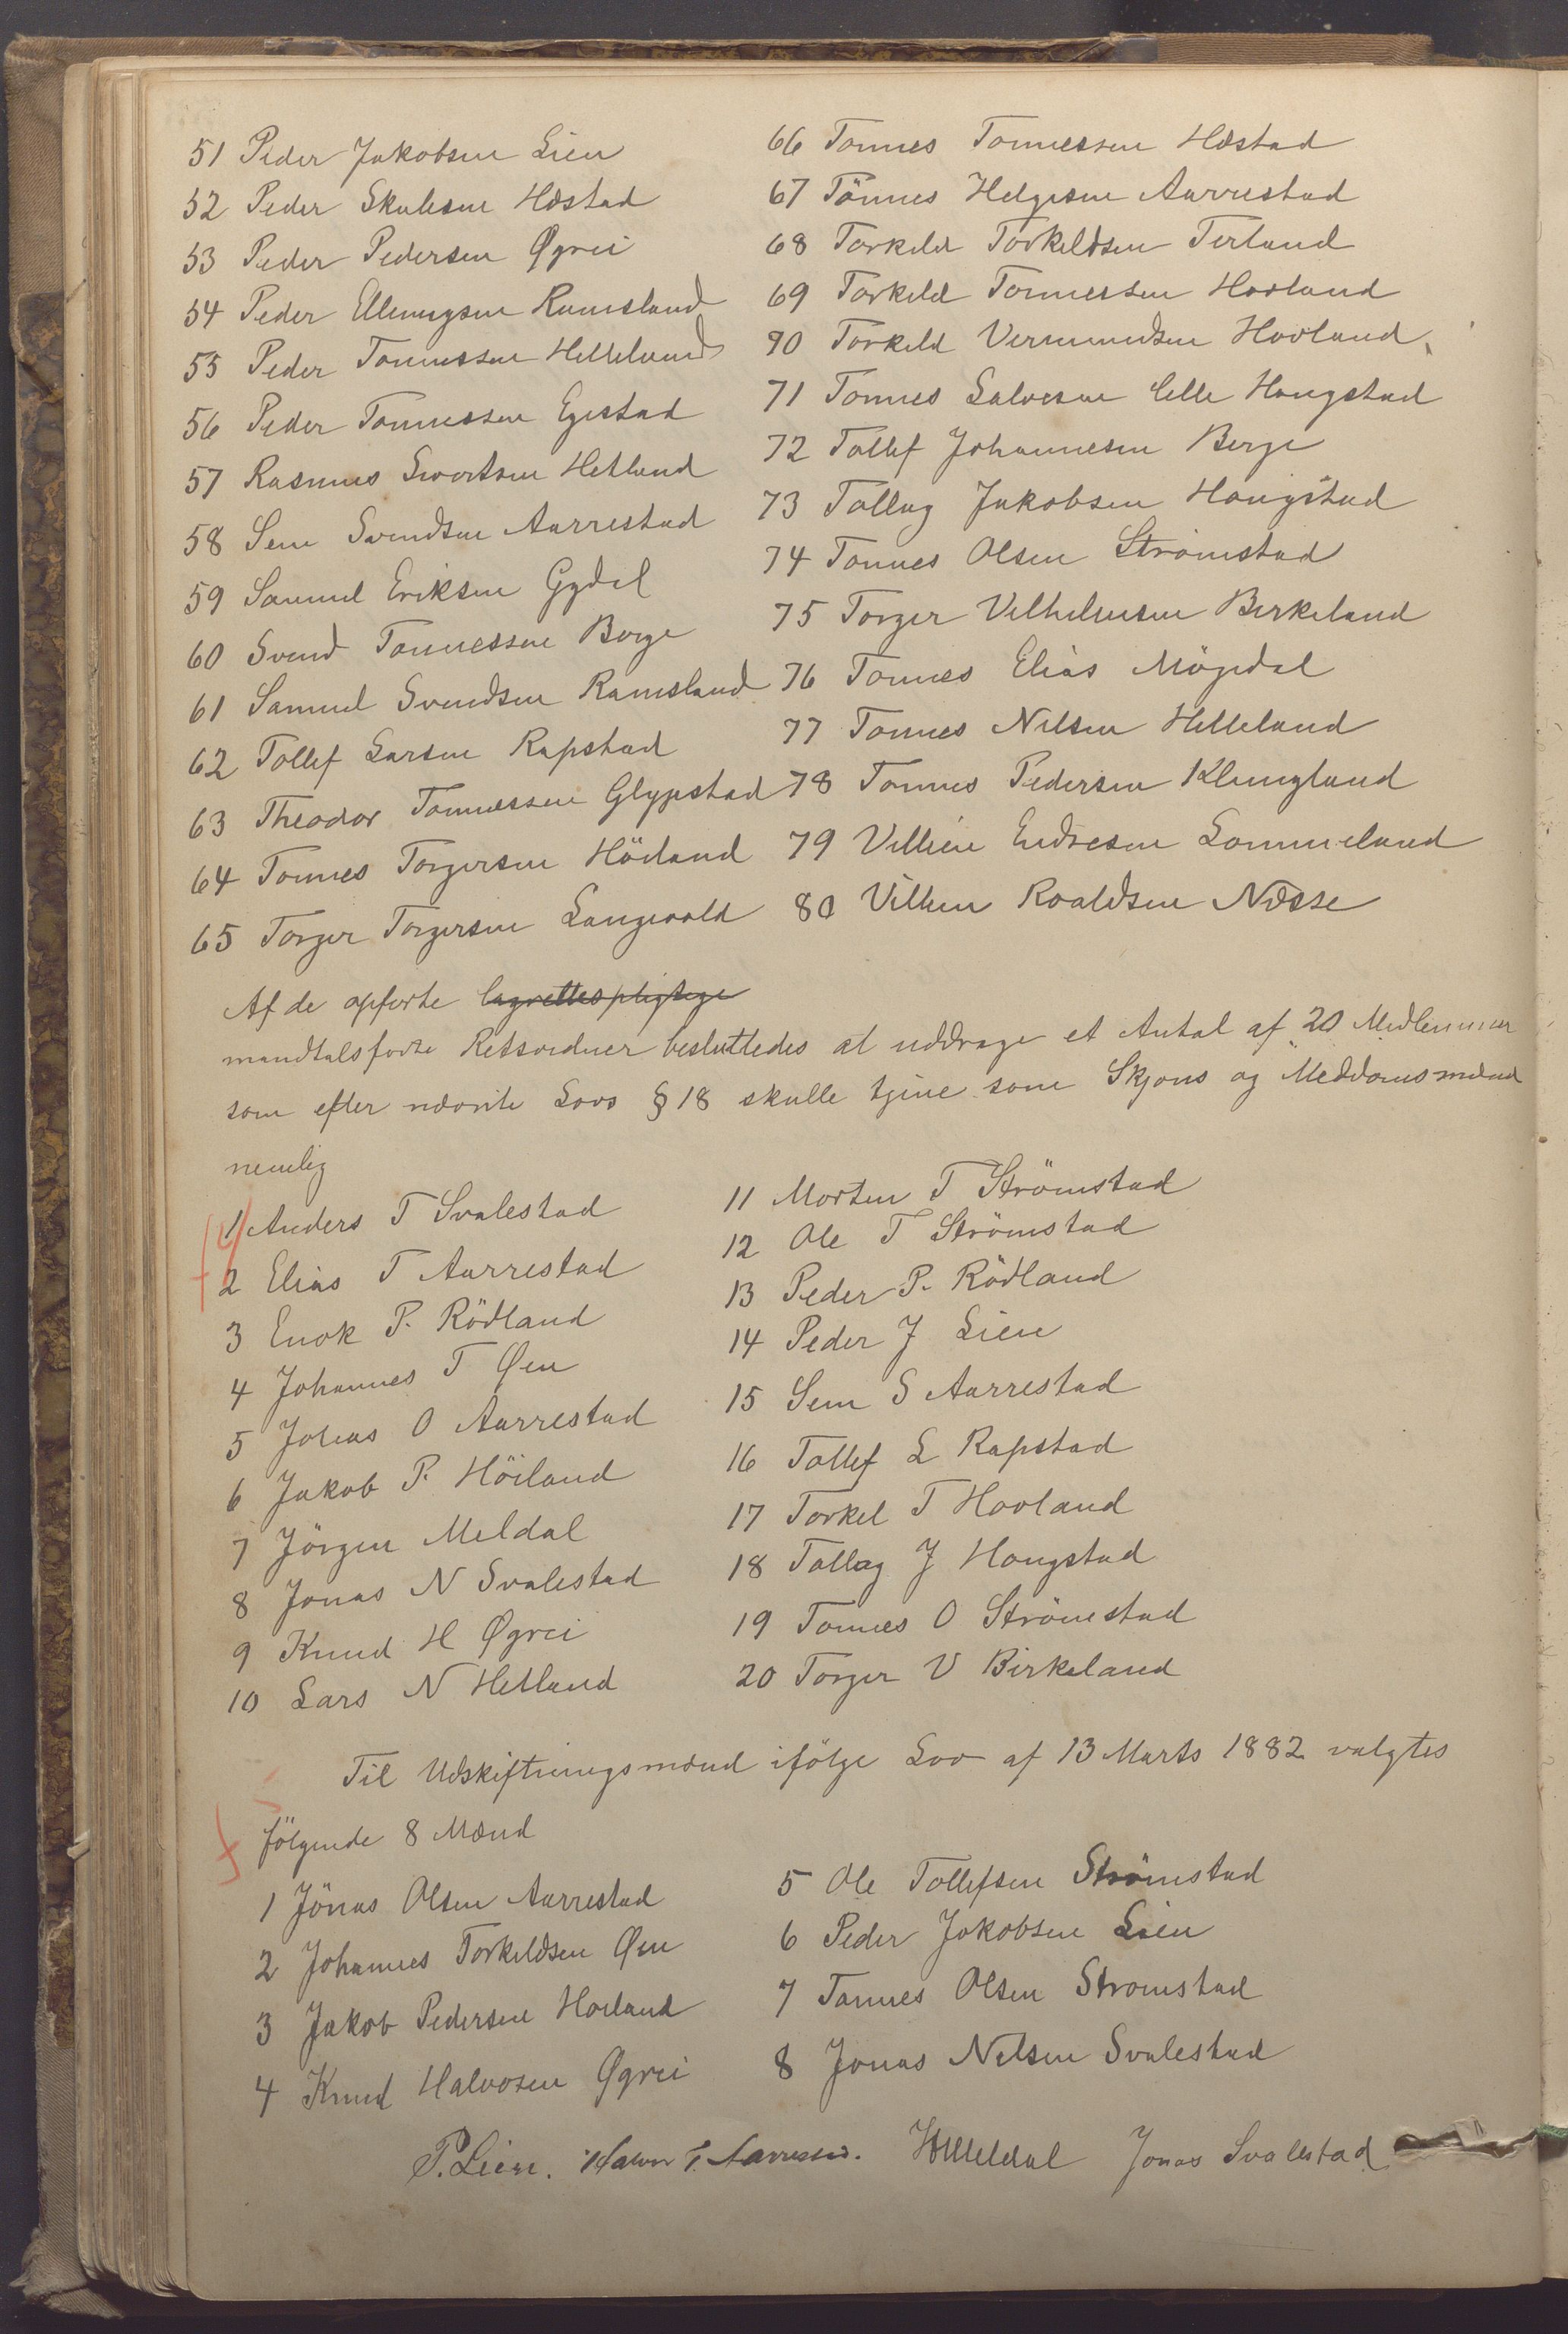 51 Peder Jakobsen Lien
52 Peder Skulesen Hæstad
53 Peder Pedersen Øgrei
54 Peder Ellingsen Ramsland
55 Peder Tønnessen Helleland
56 Peder Tonnessen Egestad
57 Rasmus Sivertsen Hetland
58 Sem Svendsen Aarrestad
59 Samuel Eriksen Gydal
60 Svend Tonnessen Berge
61 Samuel Svendsen Ramsland
62 Tollef Larsen Rapstad
63 Theodor Tonnessen Glypstad
64 Tonnes Torgersen Höiland
65 Torger Torgersen Langevold
66 Tonnes Tonnessen Hæstad
67 Tönnes Helgesen Aarrestad
68 Torkild Torkildsen Terland
69 Torkild Tonnessen Hovland
70 Torkild Vermundsen Hovland
71 Tonnes Salvesen lille Hougstad
72 Tollef Johannesen Berge
73 Tollag Jakobsen Hougstad
74 Tonnes Olsen Strömstad
75 Torger Vilhelmsen Birkeland
76 Tonnes Elias Mögedal
77 Tonnes Nilsen Helleland
78 Tonnes Pedersen Klungland
79 Villum Endresen Lommeland
80 Villum Roaldsen Næsse
Af de opførte lagrettespligtige
mandtalsførte Retsvidner besluttedes at uddrage et Antal af 20 Medlemmer
som efter nævnte Lovs § 18 skulle tjene som Skjøns og Meddomsmænd
nemlig
1 Anders T Svalestad
2 Elias T Aarrestad
3 Enok P. Rödland
4 Johannes T Øen
5 Jonas O Aarrestad
6 Jakob P. Höiland
7 Jörgen Meldal
8 Jonas N Svalestad
9 Knud H Øgrei
10 Lars N Hetland
11 Morten T Strömstad
12 Ole T Strömstad
13 Peder P. Rödland
14 Peder J Lien
15 Sem S Aarrestad
16 Tollef L Rapstad
17 Torkel T Hovland
18 Tollag J Hougstad
19 Tonnes O Strömstad
20 Torger V Birkeland
Til Udskiftningsmænd ifölge Lov af 13 Marts 1882 valgtes
fölgende 8 Mænd
1 Jönas Olsen Aarrestad
2 Johannes Torkildsen Øen
3 Jakob Pedersen Hoiland
4 Knud Halvorsen Øgrei
5 Ole Tollefsen Strömstad
6 Peder Jakobsen Lien
7 Tonnes Olsen Stromstad
8 Jonas Nilsen Svalestad
P. Lien. Halvor T. Aarrestad. H Meldal Jonas Svalestad